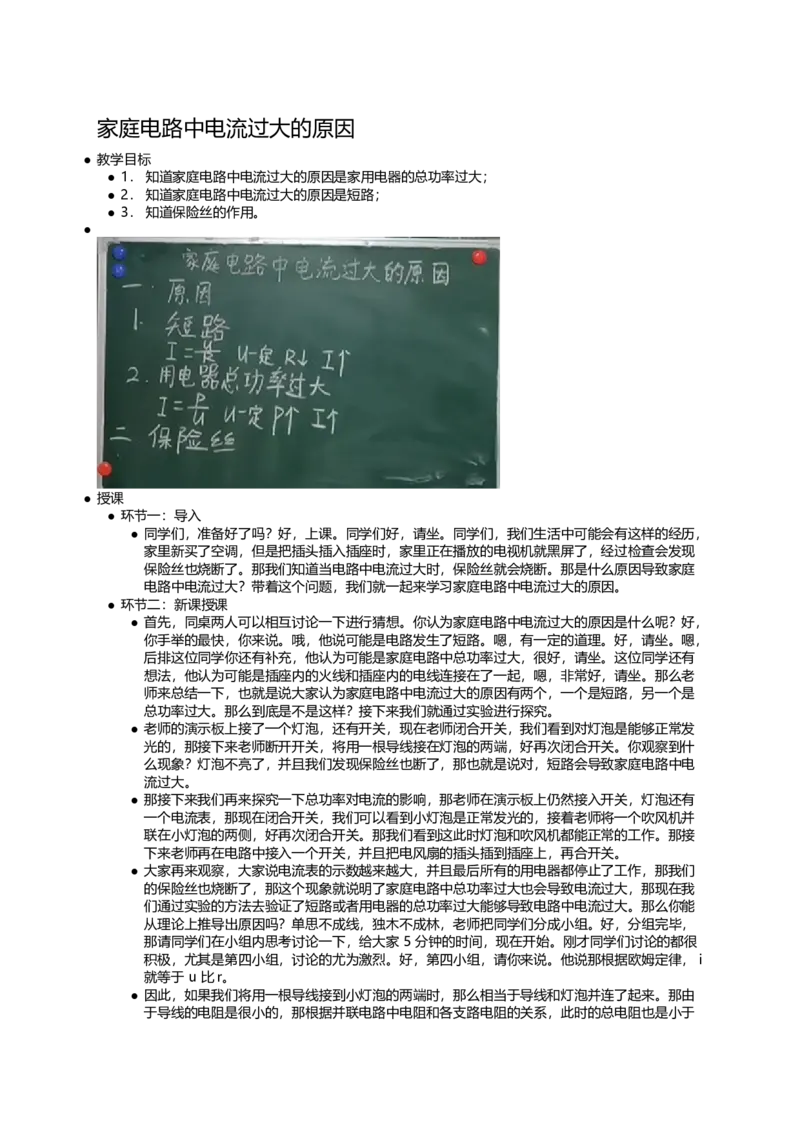 家庭电路中电流过大的原因
● 教学目标
● 1. 知道家庭电路中电流过大的原因是家用电器的总功率过大；
● 2. 知道家庭电路中电流过大的原因是短路；
● 3. 知道保险丝的作用。
●
家庭电路中电流过大的原因
一. 原因
1. 短路
I=U/R U一定 R↓ I↑
2. 用电器总功率过大
I=P/U U一定 P↑ I↑
二 保险丝
● 授课
● 环节一：导入
● 同学们，准备好了吗？好，上课。同学们好，请坐。同学们，我们生活中可能会有这样的经历，
家里新买了空调，但是把插头插入插座时，家里正在播放的电视机就黑屏了，经过检查会发现
保险丝也烧断了。那我们知道当电路中电流过大时，保险丝就会烧断。那是什么原因导致家庭
电路中电流过大？带着这个问题，我们就一起来学习家庭电路中电流过大的原因。
● 环节二：新课授课
● 首先，同桌两人可以相互讨论一下进行猜想。你认为家庭电路中电流过大的原因是什么呢？好，
你手举的最快，你来说。哦，他说可能是电路发生了短路。嗯，有一定的道理。好，请坐。嗯，
后排这位同学你还有补充，他认为可能是家庭电路中总功率过大，很好，请坐。这位同学还有
想法，他认为可能是插座内的火线和插座内的电线连接在了一起，嗯，非常好，请坐。那么老
师来总结一下，也就是说大家认为家庭电路中电流过大的原因有两个，一个是短路，另一个是
总功率过大。那么到底是不是这样？接下来我们就通过实验进行探究。
● 老师的演示板上接了一个灯泡，还有开关，现在老师闭合开关，我们看到对灯泡是能够正常发
光的，那接下来老师断开开关，将用一根导线接在灯泡的两端，好再次闭合开关。你观察到什
么现象？灯泡不亮了，并且我们发现保险丝也断了，那也就是说对，短路会导致家庭电路中电
流过大。
● 那接下来我们再来探究一下总功率对电流的影响，那老师在演示板上仍然接入开关，灯泡还有
一个电流表，那现在闭合开关，我们可以看到小灯泡是正常发光的，接着老师将一个吹风机并
联在小灯泡的两侧，好再次闭合开关。那我们看到这此时灯泡和吹风机都能正常的工作。那接
下来老师再在电路中接入一个开关，并且把电风扇的插头插到插座上，再合开关。
● 大家再来观察，大家说电流表的示数越来越大，并且最后所有的用电器都停止了工作，那我们
的保险丝也烧断了，那这个现象就说明了家庭电路中总功率过大也会导致电流过大，那现在我
们通过实验的方法去验证了短路或者用电器的总功率过大能够导致电路中电流过大。那么你能
从理论上推导出原因吗？单思不成线，独木不成林，老师把同学们分成小组。好，分组完毕，
那请同学们在小组内思考讨论一下，给大家 5 分钟的时间，现在开始。刚才同学们讨论的都很
积极，尤其是第四小组，讨论的尤为激烈。好，第四小组，请你来说。他说那根据欧姆定律， i
就等于 u 比 r。
● 因此，如果我们将用一根导线接到小灯泡的两端时，那么相当于导线和灯泡并连了起来。那由
于导线的电阻是很小的，那根据并联电路中电阻和各支路电阻的关系，此时的总电阻也是小于